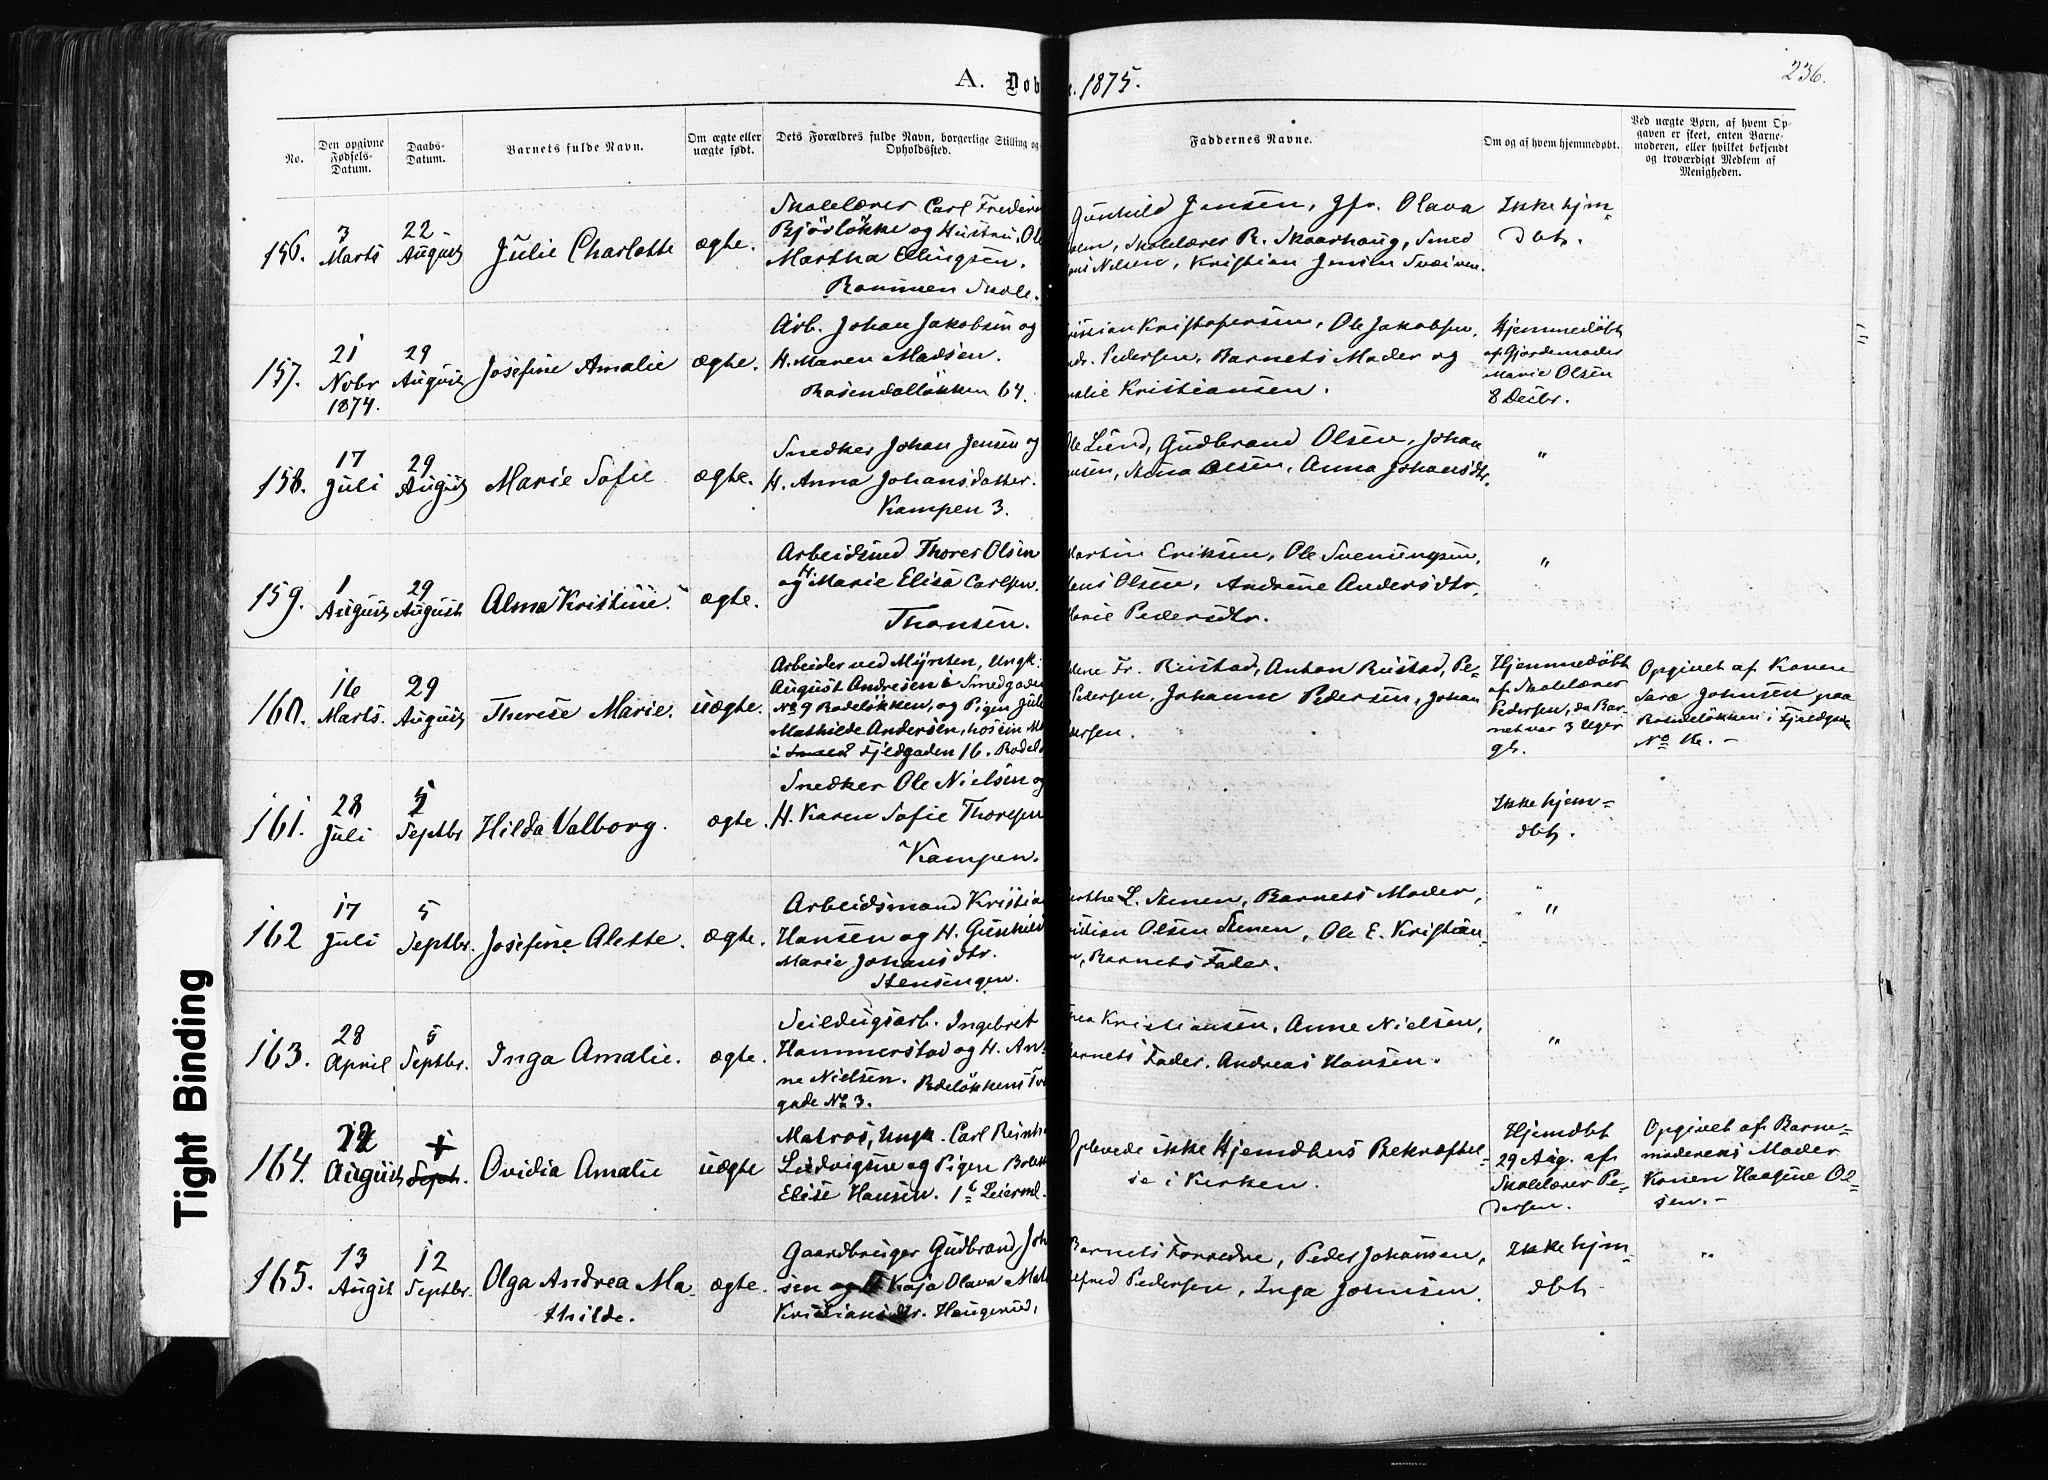 236.
A. Døb
1875.
No.
Den opgivne Fødsels-Datum.
Daabs-Datum.
Barnets fulde Navn.
Om ægte eller uægte født.
Dets Forældres fulde Navn, borgerlige Stilling og Opholdssted.
Faddernes Navne.
Om og af hvem hjemmedøbt.
Ved uægte Børn, af hvem Opgaven er skeet, enten Barnemoderen, eller hvilket bekjendt og troværdigt Medlem af Menigheden.
156.
3 Marts
22 August
Julie Charlotte
ægte.
Skolelærer Carl Frederi
Bjørløkke og Hustru, Ole
Martha Ellingsen.
Rommen Skole.
Gunhild Jensen, Jfr. Olava
Skolelærer R. Skaarhaug, Smed
Nilsen, Kristian Jensen
Ikke hjm=
dbt.
157.
21 Novbr 1874.
29 August
Josefine Amalie
ægte.
Arb. Johan Jakobsen og
H. Maren Madsen.
Rosendalløkken 64.
Kristofersen, Ole Jakobsen,
Pedersen, Barnets Moder og
Kristiansen.
Hjemmedøbt
af Gjordemoder
Marie Olsen
8 Decbr.
158.
17 Juli
29 August
Marie Sofie
ægte.
Snedker Johan Jensen og
H. Anna Johansdatter.
Kampen 3.
Lund, Gudbrand Olsen, Johan
Stina Olsen, Anna Johansdtr.
"
159.
1 August
29 August
Alma Kristine.
ægte.
Arbeidsmd Thorer Olsen
og H. Marie Elisa Carlsen.
Thonsen.
Martin Eriksen, Ole Svenningsen,
Olsen, Andrine Andersdtr,
Marie Pedersdtr.
"
160.
16 Marts.
29 August
Therese Marie.
uægte.
Arbeider ved Mynten, Ungk.
August Andresen i Smedgaden
No 9 Rodeløkken, og Pigen Jul
Mathilde Andersen, hos sin M
i Fjeldgaden 16. Rodel
Fr. Rustad, Anton Rustad, Pe=
Pedersen, Johanne Pedersen, Johan
Hjemmedøbt
af Skolelærer
Pedersen, da Bar=
net var 3 Uger
gl.
Opgivet af Konen
Sara Johnsen paa
Rodeløkken i Fjeldgade
No 16.-
161.
28 Juli
5 Septbr
Hilda Valborg.
ægte.
Snedker Ole Nielsen og
H. Karen Sofie Thoresen
Kampen.
Ikke hjem=
dbt.
162
17 Juli
5 Septbr.
Josefine Alette.
ægte.
Arbeidsmand Kristia
Hansen og H. Gunhild
Marie Johansdtr.
Stensengen.
L. Stenen, Barnets Moder,
Olsen Stenen, Ole E. Kristian=
Barnets Fader.
"
163.
28 April
5 Septbr.
Inga Amalie.
ægte.
Seildugsarb. Ingebret
Hammerstad og H. An=
ne Nielsen. Rodeløkkens Tv
gade No 3.
Kristiansen, Anne Nielsen,
Barnets Fader, Andreas Hansen.
"
164.
August
Sept.
Ovidia Amalie
uægte
Matros, Ungk. Carl Reinh
Ludvigsen og Pigen Bolett
Elise Hansen. 1ste Leierml.
Oplevede ikke Hjemdbens Bekræftel=
se i Kirken.
Hjemdbt
29 Aug. af
Skolelærer Pe=
dersen.
Opgivet af Barne=
moderens Moder
Konen Ol=
sen.-
165.
13 Augst
12 Septbr.
Olga Andrea Ma=
thilde.
ægte.
Gaardbruger Gudbrand Joh
sen og H. Kaja Olava Mat
Kristiansdtr. Haugerud,
Barnets Forældre, Peder Johansen,
Pedersen, Inga Johnsen.
Ikke hjm=
dbt
"
Tight Binding